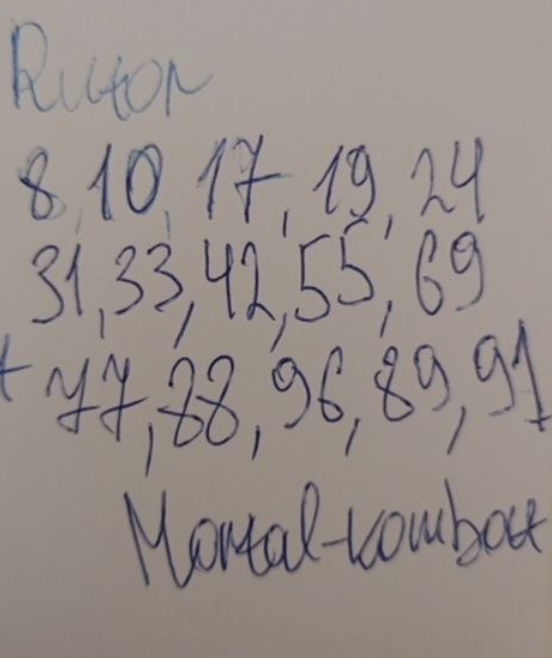 8, 10, 17, 19, 24
31, 33, 42, 55, 69
+ 77, 88, 96, 89, 91
Mortal-kombat